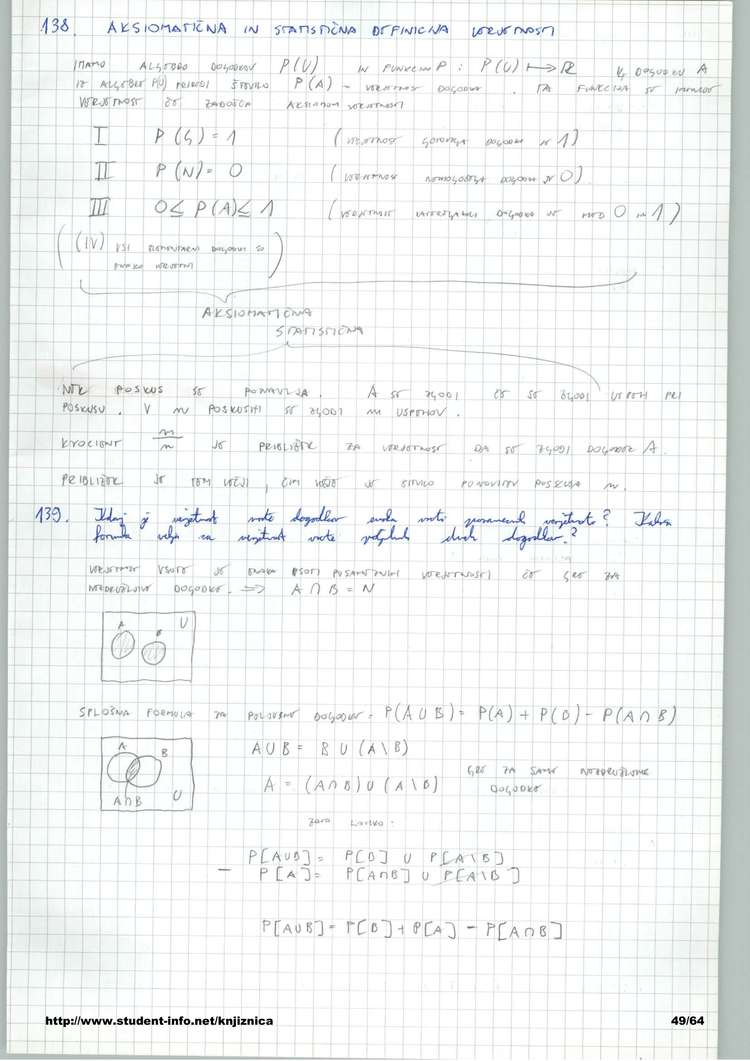 138. AKSIOMATIČNA IN STATISTIČNA DEFINICIJA VERJETNOSTI
IMAMO ALGEBRO DOGODKOV P(U) IN FUNKCIJO P : P(U) ↦ R KI DOGODKU A
IZ ALGEBRE P(U) PRIREDI ŠTEVILO P(A) - VERJETNOST DOGODKA . TA FUNKCIJA SE IMENUJE
VERJETNOST ČE ZADOŠČA AKSIOMOM VERJETNOSTI
I P(G) = 1 (VERJETNOST GOTOVEGA DOGODKA JE 1)
II P(N) = 0 (VERJETNOST NEMOGOČEGA DOGODKA JE 0)
III 0 ≤ P(A) ≤ 1 (VERJETNOST DOGODKA JE MED 0 IN 1)
((IV) VSI ELEMENTARNI DOGODKI SO
ENAKO VERJETNI)
AKSIOMATIČNA
STATISTIČNA
NEK POSKUS SE PONAVLJA. A SE ZGODI ČE SE ZGODI USPEH PRI
POSKUSU. V n POSKUSIH SE ZGODI m USPEHOV.
KVOCIENT m/n JE PRIBLIŽEK ZA VERJETNOST DA SE ZGODI DOGODEK A.
PRIBLIŽEK JE TEM VEČJI, ČIM VEČJE JE ŠTEVILO PONOVITEV POSKUSA n.
139. Kdaj je verjetnost vsote dogodkov enaka vsoti posameznih verjetnosti? Kakšna
formula velja za verjetnost vsote poljubnih dveh dogodkov?
VERJETNOST VSOTE JE ENAKA VSOTI POSAMEZNIH VERJETNOSTI ČE GRE ZA
NEZDRUŽLJIVE DOGODKE. => A ∩ B = N
A B U
SPLOŠNA FORMULA ZA POLJUBNE DOGODKE = P(A ∪ B) = P(A) + P(B) - P(A ∩ B)
A B A∩B U
A ∪ B = B ∪ (A \ B)
A = (A ∩ B) ∪ (A \ B)
GRE ZA SAME NEZDRUŽLJIVE
DOGODKE
ZATO LAHKO:
P[A∪B] = P[B] ∪ P[A\B]
- P[A] = P[A∩B] ∪ P[A\B]
P[A∪B] = P[B] + P[A] - P[A∩B]
http://www.student-info.net/knjiznica 49/64